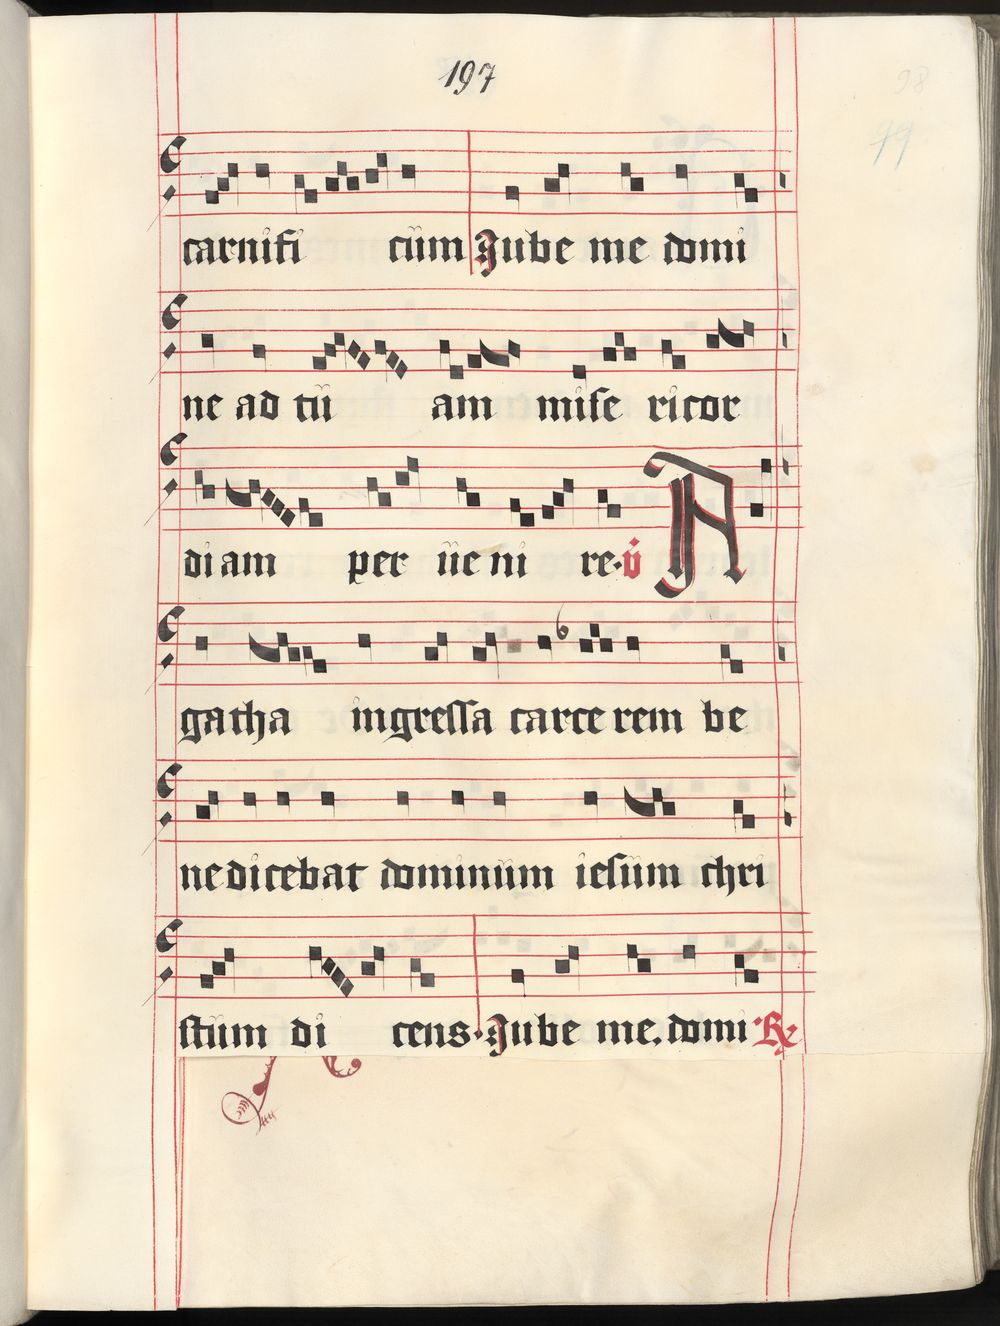 197
98
99
carnifi cüm Jube me domi
ne ad tü am mise ricor
diam per üeni re· v̇ A
gatha ingressa carcerem be
nedicebat dominüm iesüm chri
stüm di cens· Jube me. domi ·R·